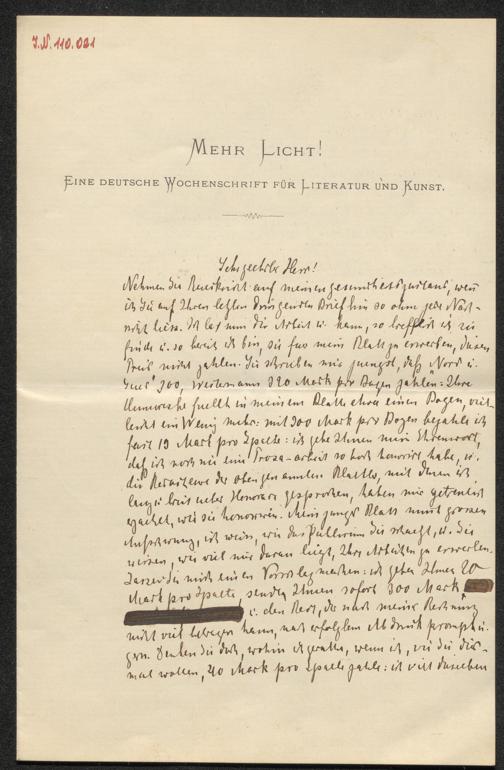 J.N. 110.081
MEHR LICHT!
EINE DEUTSCHE WOCHENSCHRIFT FÜR LITERATUR UND KUNST.
Sehr geehrter Herr!
Nehmen Sie Ruecksicht auf meinen gesundheitszustand, wenn
ich Sie auf Ihren letzten dringenden Brief hin so ohne jede Nach-
richt liess. Ich las nun die Arbeit u. kann, so trefflich ich sie
finde u. so bereit ich bin, sie fuer mein Blatt zu erwerben, diesen
Preis nicht zahlen. Sie schreiben mir juengst, daß Nord u.
Sued 300, Westermann 320 Mark pro Bogen zahlen: Ihre
fuellt in meinem Blatte etwa einen Bogen, viel-
leicht ein Wenig mehr: mit 300 Mark pro Bogen bezahle ich
fast 19 Mark pro Spalte: ich gebe Ihnen mein Ehrenwort,
daß ich noch nie eine Prosa-arbeit so hoch honorirt habe, u.
die Redacteure der obengenannten Blätter, mit denen ich
lang u. breit ueber Honorare gesprochen, haben mir
wie sie honoriren. Mein junges Blatt nimmt grossen
Aufschwung, ich weiss, wie das Publicum Sie schaetzt, u. Sie
wissen, wie viel mir daran liegt, Ihre Arbeiten zu erwerben.
Lassen Sie mich einen Vorschlag machen: ich gebe Ihnen 20
Mark pro Spalte, sende Ihnen sofort 300 Mark
u. den Rest, der nach meiner Rechnung
nicht viel betragen kann, nach erfolgtem Abdruck prompt u.
gern. Denken Sie doch, wohin ich gerathe, wenn ich, wie Sie dies-
mal wollen, 40 Mark pro Spalte zahle: ist viel dasselbe